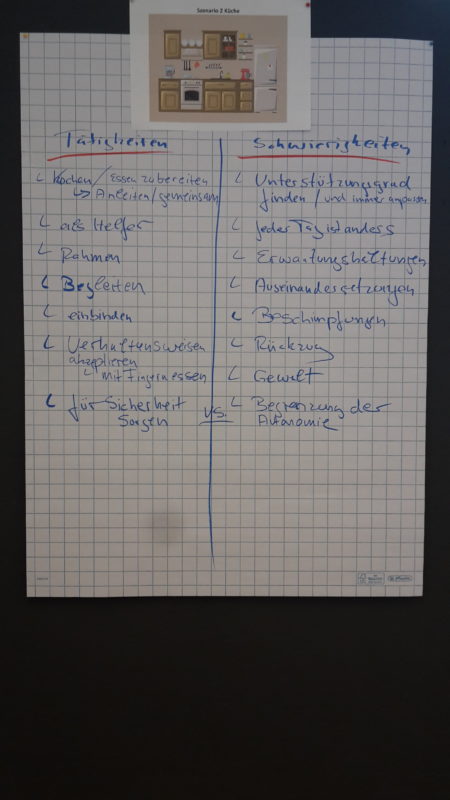 Szenario 2 Küche
Tätigkeiten
Kochen / Essen zubereiten
↳ Anleiten / gemeinsam
als Helfer
Rahmen
Begleiten
einbinden
Verhaltensweisen
akzeptieren
mit Fingern essen
für Sicherheit
sorgen
vs.
Schwierigkeiten
Unterstützungsgrad
finden / und immer anpassen
jeder Tag ist anders
Erwartungshaltungen
Auseinandersetzungen
Beschimpfungen
Rückzug
Gewalt
Begrenzung der
Autonomie